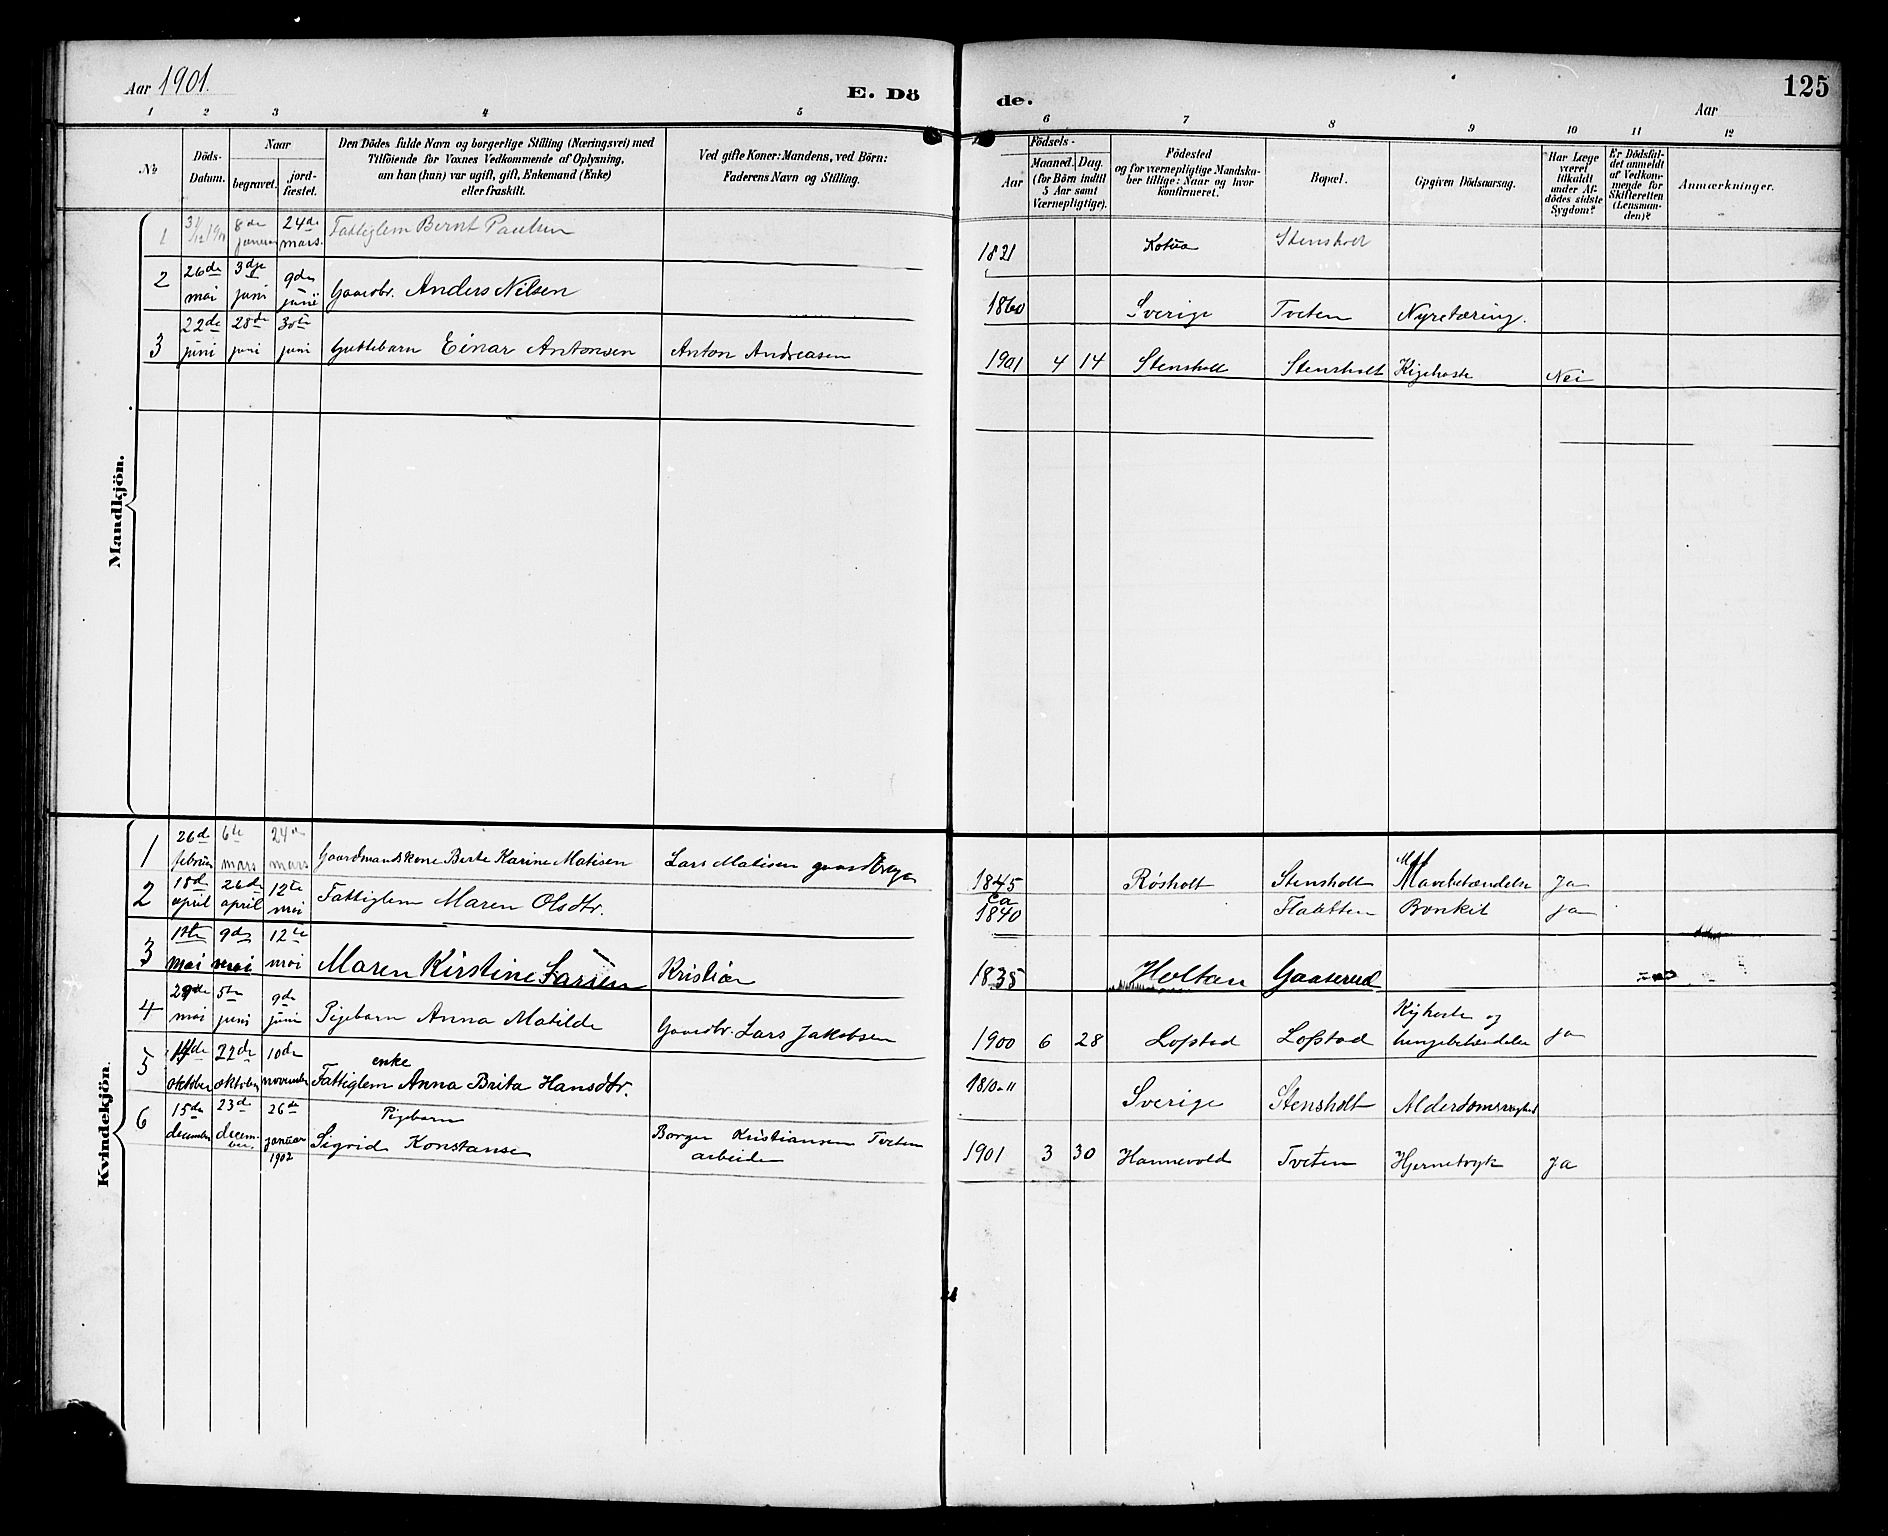 Aar 1901. E. Dö de. Aar 125
1 2 3 4 5 6 7 8 9 10 11 12
No
Döds-Datum.
Naar
begravet. jordfæstet.
Den Dödes fulde Navn og borgerlige Stilling (Næringsvei) med
Tilföiende for Voxnes Vedkommende af Oplysning,
om han (hun) var ugift, gift, Enkemand (Enke)
eller fraskilt.
Ved gifte Koner: Mandens, ved Börn:
Faderens Navn og Stilling.
Födsels-
Aar
Maaned. Dag.
(for Börn indtil
5 Aar samt
Værnepligtige).
Födested
og for værnepligtige Mandska-
ber tillige: Naar og hvor
konfirmeret.
Bopæl.
Opgiven Dödsaarsag.
Har Læge
været
tilkaldt
under Af-
dödes sidste
Sygdom?
Er Dödsfal-
det anmeldt
af Vedkom-
mende for
Skifteretten
(Lensman-
den)?
Anmærkninger.
Mandkjön.
1 31/12 8de januar 24de mars. Fattiglem Bernt Paulsen 1821 Stensholt
2 26de mai 3dje juni 9de juni Gaardbr. Anders Nilsen 1860 Sverige Tveten Nyretæring.
3 22de juni 28de juni 30te juni Guttebarn Einar Antonsen Anton Andreasen 1901 4 14 Stensholt Stensholt Kighoste Nei
Kvindekjön.
1 26de februar 6te mars 24de mars Gaardmandskone Berte Karine Matisen Lars Matisen 1845 Røsholt Stensholt Mavebetændelse Ja
2 18de april 26de april 12te mai Fattiglem Maren Olsdtr. ca 1840 Flaatten Bronkit Ja
3 mai 9de mai 12te mai Maren Kirstine Larsen Kristian 1835 Holtan Gaaserud
4 29de mai 5te juni 9de juni Pigebarn Anna Matilde Gaardbr. Lars Jakobsen 1900 6 28 Lofstad Lofstad Kighoste og
lungebetændelse Ja
5 14de oktober 22de oktober 10de november enke
Fattiglem Anna Brita Hansdtr. 1810 a 11 Sverige Stensholt Alderdomssvaghed
6 15de december 23de december 26de januar 1902 Pigebarn
Sigrid Konstanse Borger Kristiansen Tveten
arbeider 1901 3 30 Hannevold Tveten Hjernetryk Ja